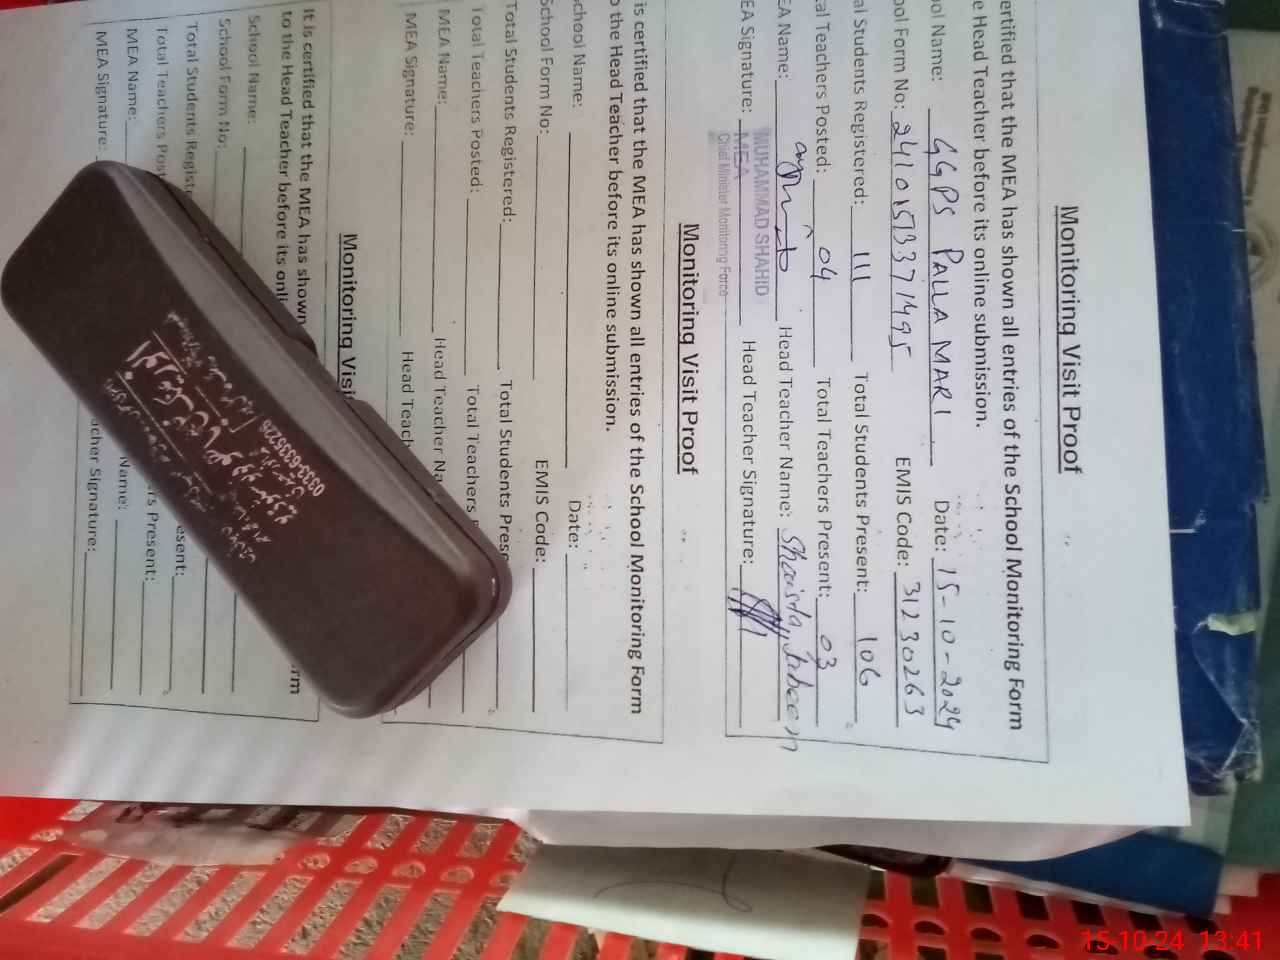 Monitoring Visit Proof
ertified that the MEA has shown all entries of the School Monitoring Form
e Head Teacher before its online submission.
ool Name: GGPS PALLA MARI Date: 15-10-2024
ool Form No: EMIS Code: 31230263
al Students Registered: 111 Total Students Present: 106
al Teachers Posted: 04 Total Teachers Present: 03
EA Name: Head Teacher Name: Shaista Jabeen
EA Signature: Head Teacher Signature:
MUHAMMAD SHAHID
MEA
Chief Minister Monitoring Force
Monitoring Visit Proof
is certified that the MEA has shown all entries of the School Monitoring Form
o the Head Teacher before its online submission.
chool Name: Date:
School Form No: EMIS Code:
Total Students Registered: Total Students Prese
Total Teachers Posted: Total Teachers
MEA Name: Head Teacher Na
MEA Signature: Head Teach
Monitoring Visi
It is certified that the MEA has shown rm
to the Head Teacher before its onli
School Name:
School Form No:
Total Students Registe esent:
Total Teachers Post rs Present:
MEA Name: Name:
MEA Signature: acher Signature:
0333-6335226
15-10-24 13:41